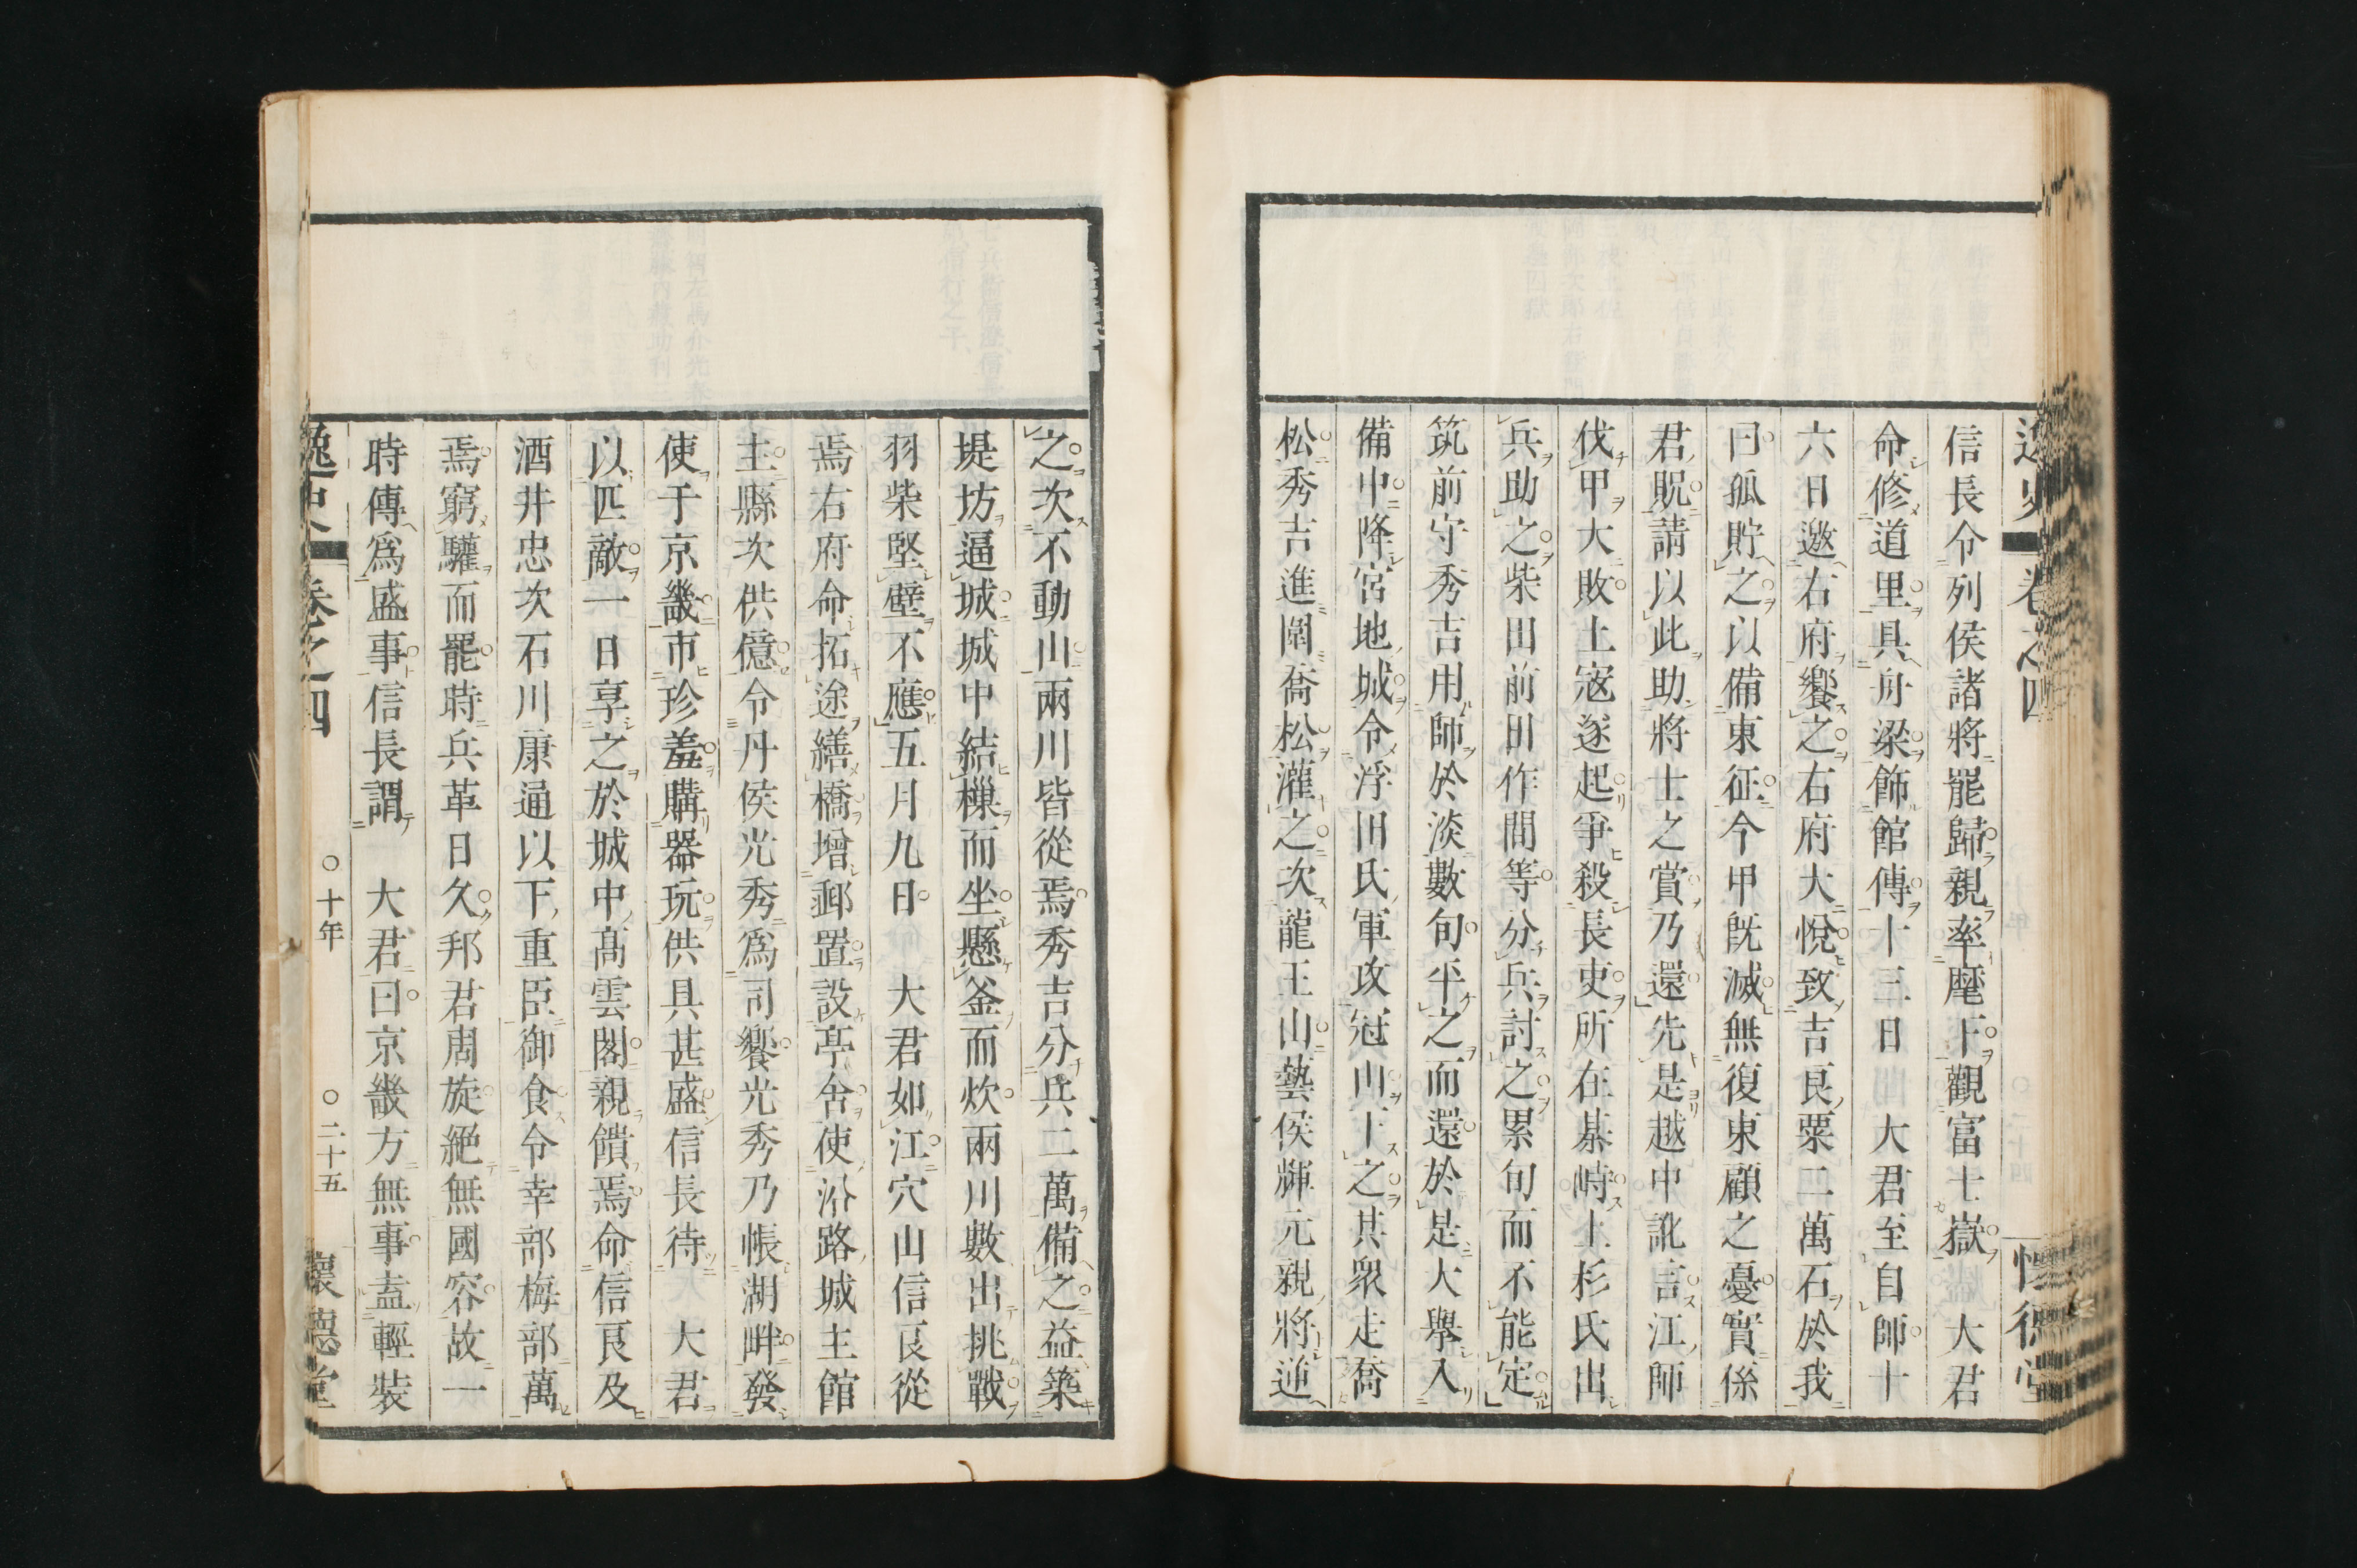 信長令列侯諸將罷歸親率麾下觀富士嶽　大君
命修道里具舟梁飾館傳十三日　大君至自師十
六日邀右府饗之右府大悅致吉良粟二萬石於我
曰孤貯之以備東征今甲旣滅無復東顧之憂實係
君貺請以此助將士之賞乃還先是越中訛言江師
伐甲大敗土寇遂起爭殺長吏所在棊峙上杉氏出
兵助之柴田前田作間等分兵討之累旬而不能定
筑前守秀吉用師於淡數旬平之而還於是大舉入
備中降宮地城令浮田氏軍攻冠山下之其衆走喬
松秀吉進圍喬松灌之次龍王山藝侯輝元親將逆
之次不動山兩川皆從焉秀吉分兵二萬備之益築
堤坊逼城城中結樔而坐懸釜而炊兩川數出挑戰
羽柴堅壁不應五月九日　大君如江穴山信良從
焉右府命拓途繕橋增郵置設亭舍使沿路城主館
主縣次供億令丹侯光秀爲司饗光秀乃帳湖畔發
使于京畿市珍羞購器玩供具甚盛信長待　大君
以匹敵一日享之於城中高雲閣親饋焉命信良及
酒井忠次石川康通以下重臣御食令幸部梅部萬
焉窮驩而罷時兵革日久邦君周旋絕無國容故一
時傳爲盛事信長謂　大君曰京畿方無事盍輕裝
逸史　卷之四　○十年　○二十五　懷德堂